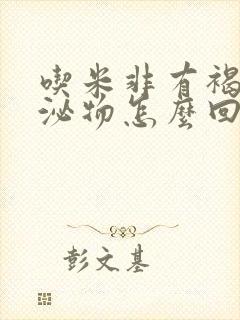 喫米非有褐
泌物怎麼回
彭文基